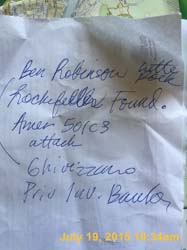 Ben Robinson Little Rock
Rockefeller Found.
Amer 501c3
attach
Ghivizzano
Priv Inv. Banks,
July 19, 2015 10:34am